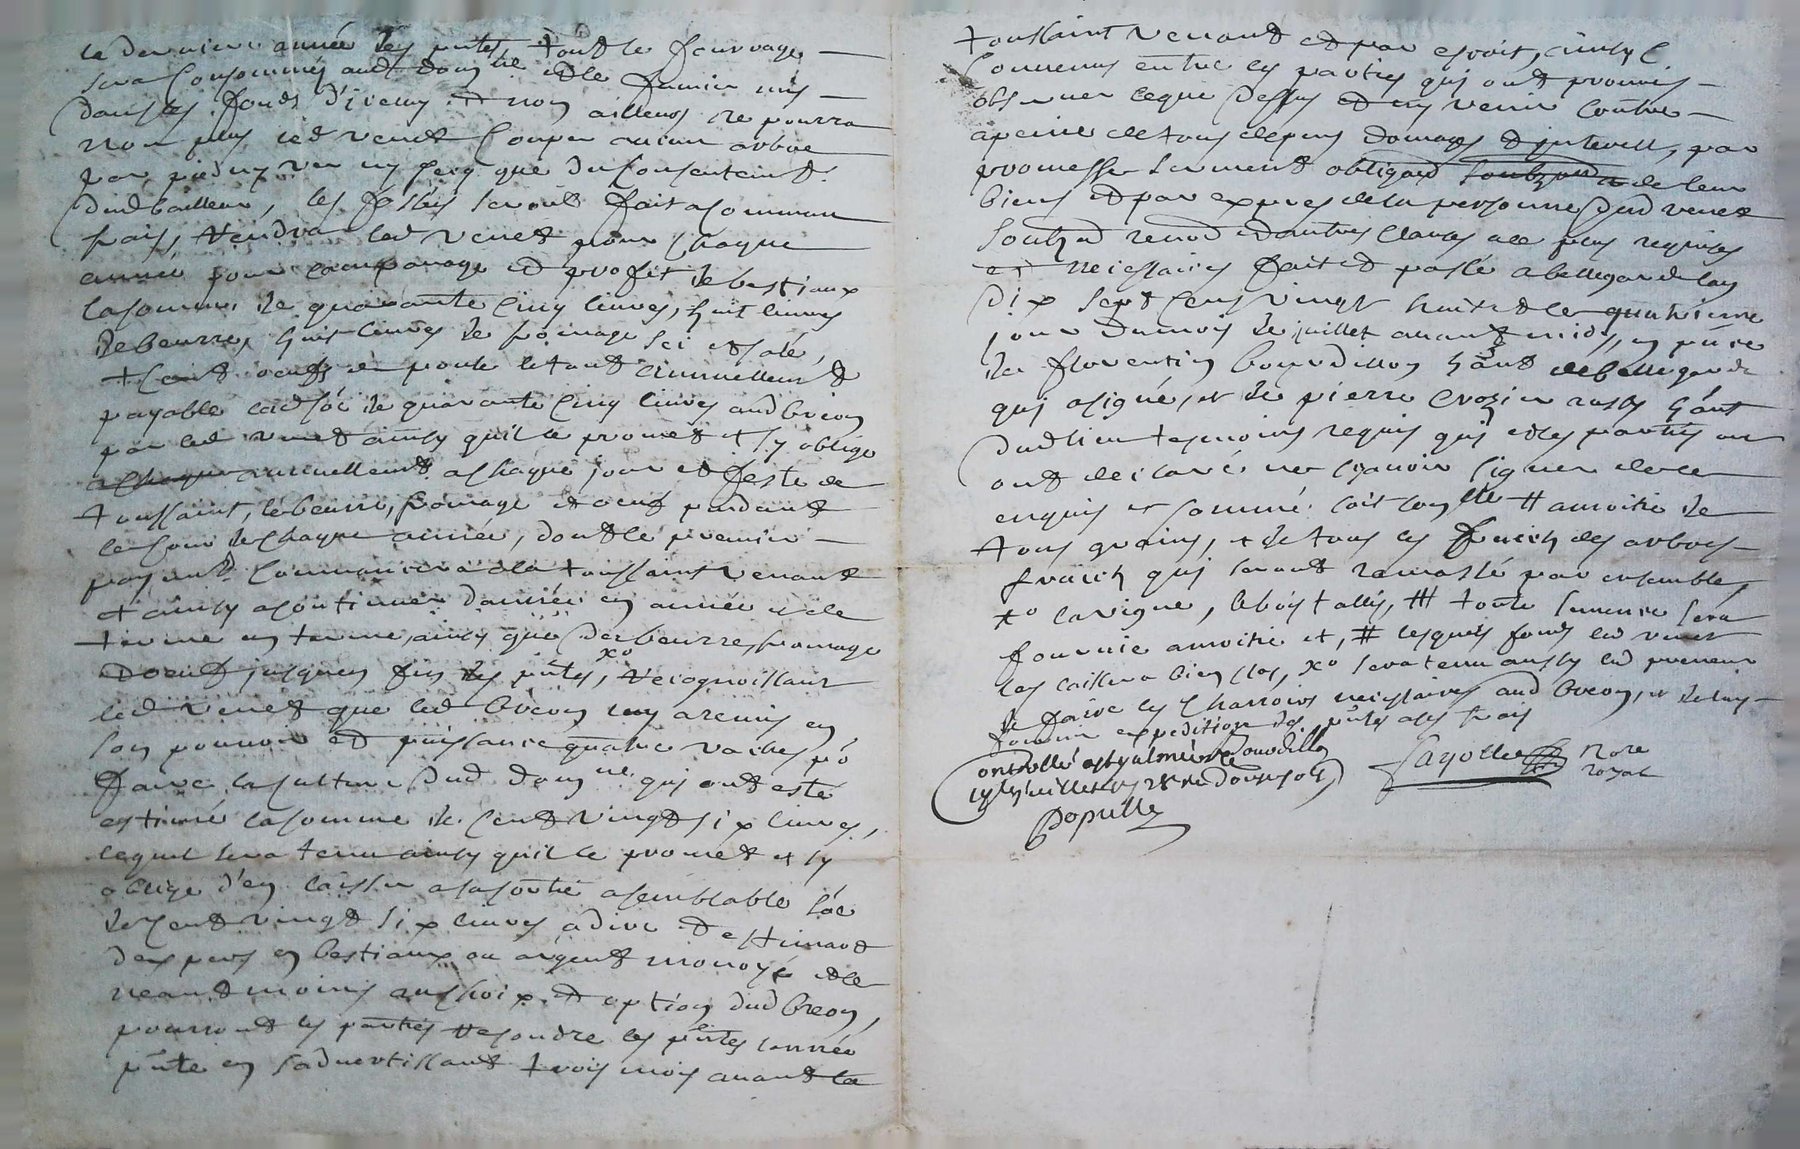 la derniere année des pntes, tout le fourrage
sera consommé aud domne et le fumier mis
dans les fonds d'iceluy et non ailleurs ne pourra
non plus led venet couper aucun arbre
par pied ny vif ny secq que du consentemt
dud bailleur, les fossés seront fait a commun
frais, rendra led venet pour chaque
année pour et profit de bestiaux
la somme de quarante cinq livres, huit livres
de beurre, huit livres de fromage sec et salé,
+ cent oeufs de poule le tout annuellemt
payable lad sôe de quarante cinq livres aud breon
par led venet ainsy quil le promet et sy oblige
annuellemt a chaque jour et feste de
toussaint, le beurre, fromage et oeufs pendant
le cour de chaque année, dont le premier
payemt commancera a la toussaint venant
et ainsy a continuer d'année en année et de
terme en terme, ainsy que des beurre, fromage
et oeufs jusques fin des pntes, xo recognoissant
led venet que led breon luy a remis en
son pouvoir et puissance quatre vaches po
faire la culture dud domne qui ont esté
estimé la somme de cent vingt six livres,
lequel sera tenu ainsy quil le promet et sy
oblige d'en laisser a sa sortie a semblable sôe
de cent vingt six livres a dire et estimaôn
dexpers en bestiaux ou argent monoyé et le
neantmoins au choix et option dud breon,
pourront les parties resoudre les pntes l'année
pnte en s'advertissant trois mois avant la
toussaint venant et par escrit, ainsy
convenus entre les parties qui ont promis
observer ce que dessus et ny venir contre
a peine de tous depens domages et interest, par
promesse serment obligaôn de leur
biens et par expres de la personne dud venet
soubzon renoôn et autres clauses a ce plus requises
et necessaires fait et passé a bellegarde lan
dix sept cens vingt huit et le quatrieme
jour du mois de juillet avant midy, en pnce
de florentin bourdillon hâbt de bellegarde
qui a signé, et de pierre crozier aussy hâbt
dud lieu tesmoins requis qui et les parties
ont declaré ne sçavoir signer de ce
enquis et sommé soit ## a moitié de
tous grains, et de tous les fruich des arbres
fruich qui seront ramassé par ensemble,
xo la vigne, le bois tallis, ### toute semence sera
fournie a moitié et, # lesquels fonds led venet
les laissera bien clos, xo sera tenu aussy led preneur
de faire les charrois necessaires aud breon, et de luy
fournir expedition des pntes a ses frais
Controllé a st galmier le Bourdillon
juillet 1728 re douze sols
Populle
Fayolle nore
royal